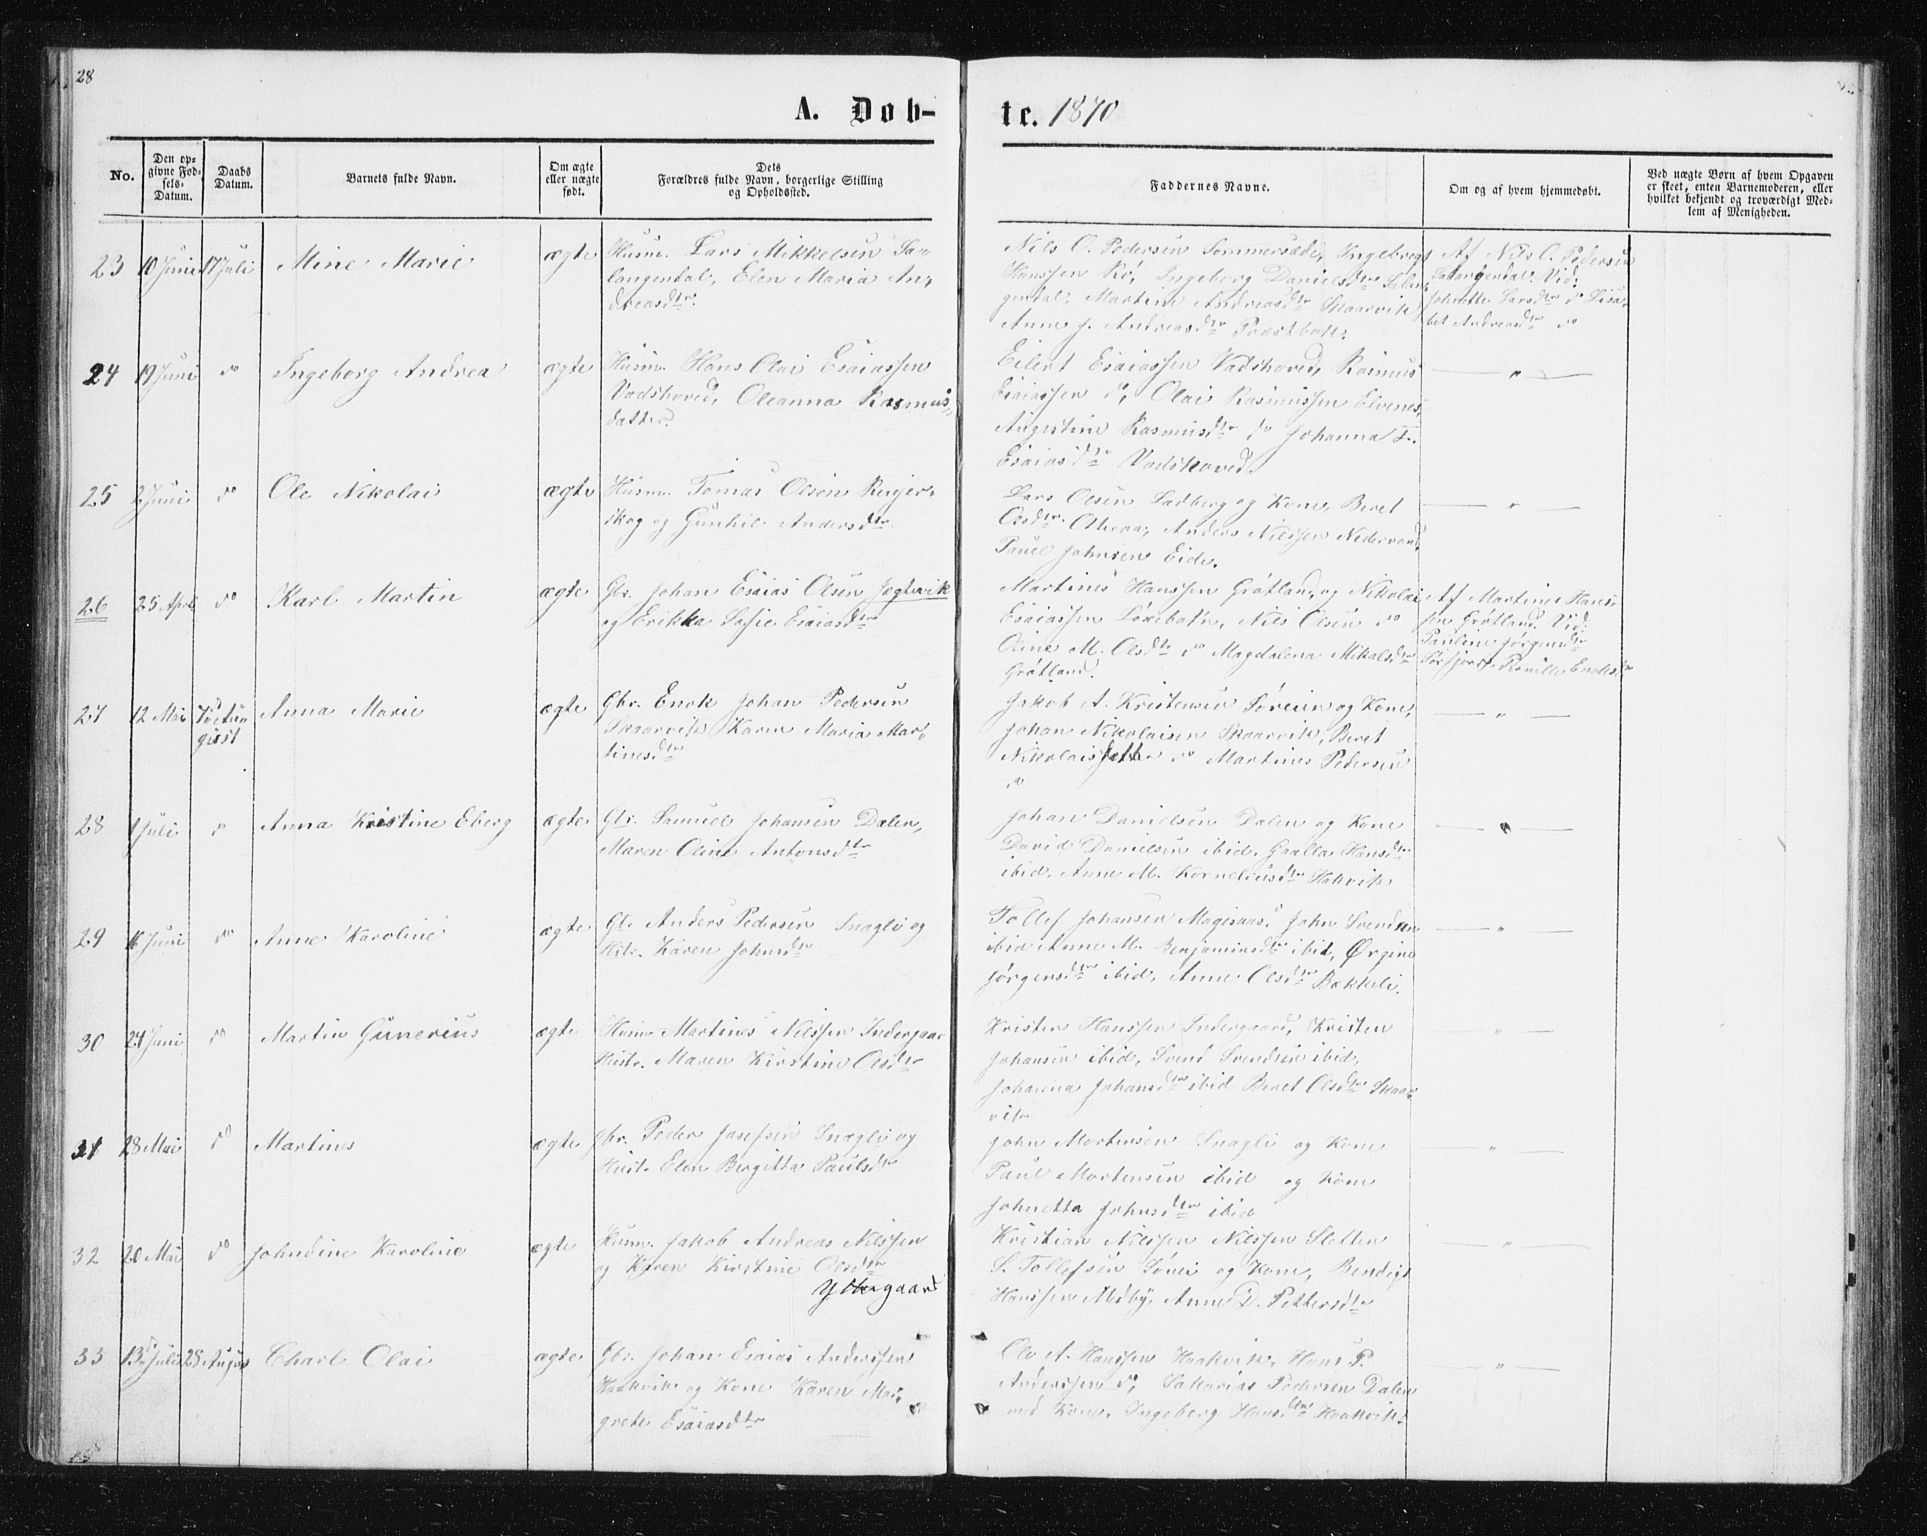 28
A. Døb-
te. 1870
No.
Den op-
givne Fød-
sels-
Datum.
Daabs
Datum.
Barnets fulde Navn.
Om ægte
eller uægte
født.
Dets
Forældres fulde Navn, borgerlige Stilling
og Opholdssted.
Faddernes Navne.
Om og af hvem hjemmedøbt.
Ved uægte Børn af hvem Opgaven
er skeet, enten Barnemoderen, eller
hvilket bekjendt og troværdigt Med-
lem af Menigheden.
23 10 Juni 17 Juli Mine Marie ægte
Husm. Lars Mikkelsen Sa-
langendal, Elen Maria An-
dreasdtr.
Nils O. Pedersen Sommersæde, Ingebregt
Hanssen Rø, Ingeborg Danielsdtr Salan-
gendal, Martine Andreasdtr Skaarvik,
Anne J. Andreasdtr Præstbak.
Af Nils O. Pedersen
Salangendal. Vid:
Johnette Larsdtr do Lisa-
bet Andreasdtr do
24 19 Juni do Ingeborg Andrea ægte
Husm. Hans Olai Esaiassen
Vadshoved, Oleanna Rasmus-
datter.
Eilert Esaiassen Vadshoved, Rasmus
Esaiassen do, Olai Rasmussen Elvenes,
Augustine Rasmusdtr do Johanna T.
Esaiasdtr Vadshoved.
— " —
25 2 Juni do Ole Nikolai ægte
Husm. Tomas Olsen Renjer-
skog og Gunhil Andersdtr
Lars Olsen Ladberg og Kone, Beret
Olsdtr, Anders Nilssen Nedervand,
Paul Johnsen Eide.
— " —
26 25 April do Karl Martin ægte
Gbr. Johan Esaias Olsen Jegtevik
og Erikka Sofie Esaiasdtr
Martines Hanssen Grøtland, og Nikolai
Esaiassen Løxebotn, Nils Olsen do
Oline M. Olsdtr do Magdalena Mikalsdtr
Grøtland.
Af Martines Hans-
sen Grøtland. Vid:
Pauline Jørgensdtr
Sørfjord, Pernille Enoksdtr
27 12 Mai 7de Au-
gust
Anna Marie ægte
Gbr. Enok Johan Pedersen
Skaarvik Karen Maria Mar-
tinesdtr
Jakob A. Kristensen Søreien og Kone,
Johan Nikolaisen Skaarvik, Beret
Nikolaisdatter do Martines Pedersen
do
— " —
28 1 Juli do Anna Kristine Eberg ægte
Gbr. Samuel Johansen Dalen,
Maren Oline Antonsdtr
Johan Danielsen Dalen og Kone
David Danielsen ibid, Hansdtr
ibid, Anne M. Korneliusdtr Hakvik
— " —
29 16 Juni do Anne Karoline ægte
Gbr Anders Pedersen Snagli og
Hstr. Karen Johnsdtr
Tollef Johansen Magisaas, John Svendsen
ibid Anne M. Benjaminsdtr ibid, Ørgine
Jørgensdtr ibid, Anne Olsdtr Bækkeli.
— " —
30 24 Juni do Martin Gunerius ægte
Husm Martines Nilssen Indergaar
Hustr. Maren Kirstine Olsdtr
Kristen Hanssen Indergaard, Kristen
Johansen ibid, Svend Svendsen ibid,
Johanna Johansdtr ibid Beret Olsdtr Skaar-
vik
— " —
31 28 Mai do Martines ægte
Gbr. Peder Josefsen Snagli og
Hust. Elen Bergitta Paulsdtr
John Mortensen Snagli og Kone
Paul Mortensen ibid og Kone
Johnetta Johnsdtr ibid
— " —
32 20 Mai do Johndine Karoline ægte
Husm. Jakob Andreas Nilssen
og Karen Kirstine Olsdtr
Yttergaard
Kristian Nilssen Nilssen Sletten
S. Tollefsen Sørei og Kone, Bendigt
Hanssen Moby, Anne D. Pettersdtr
— " —
33 13 Juli 28 August Charl Olai ægte
Gbr. Johan Esaias Anderssen
Haakvik og Kone Karen Mar-
grete Esaiasdtr
Ole A. Hanssen Haakvik, Hans P.
Anderssen do, Sakarias Pedersen Dalen
med Kone, Ingeberg Hansdtr Haakvik.
— " —